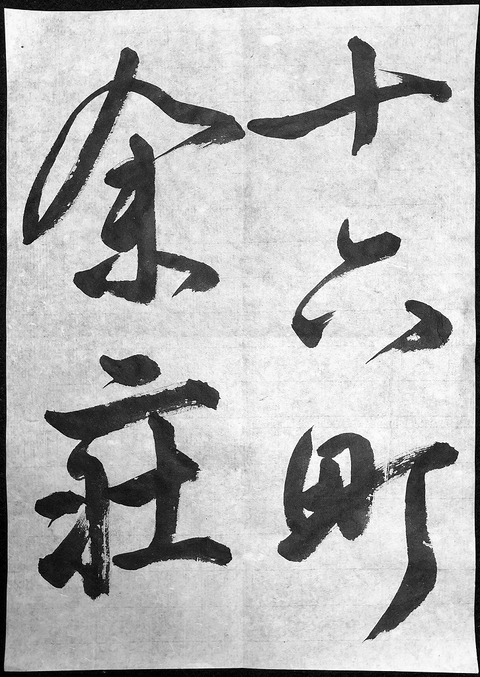 十六町
余荘